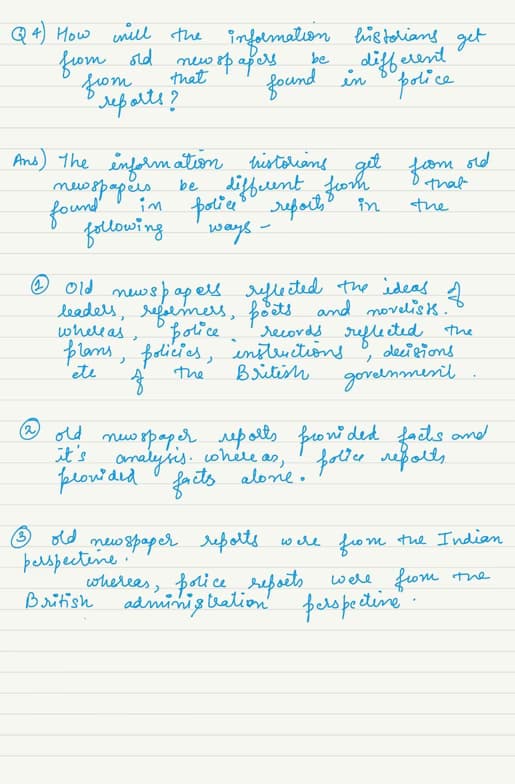 Q4) How will the information historians get
from old newspapers be different
from that found in police
reports?
Ans) The information historians get from old
newspapers be different from that
found in police reports in the
following ways -
① Old newspapers reflected the ideas of
leaders, reformers, poets and novelists.
whereas, police records reflected the
plans, policies, instructions, decisions
etc of the British government.
② old newspaper reports provided facts and
it's analysis. whereas, police reports
provided facts alone.
③ old newspaper reports were from the Indian
perspective.
whereas, police reports were from the
British administration perspective.